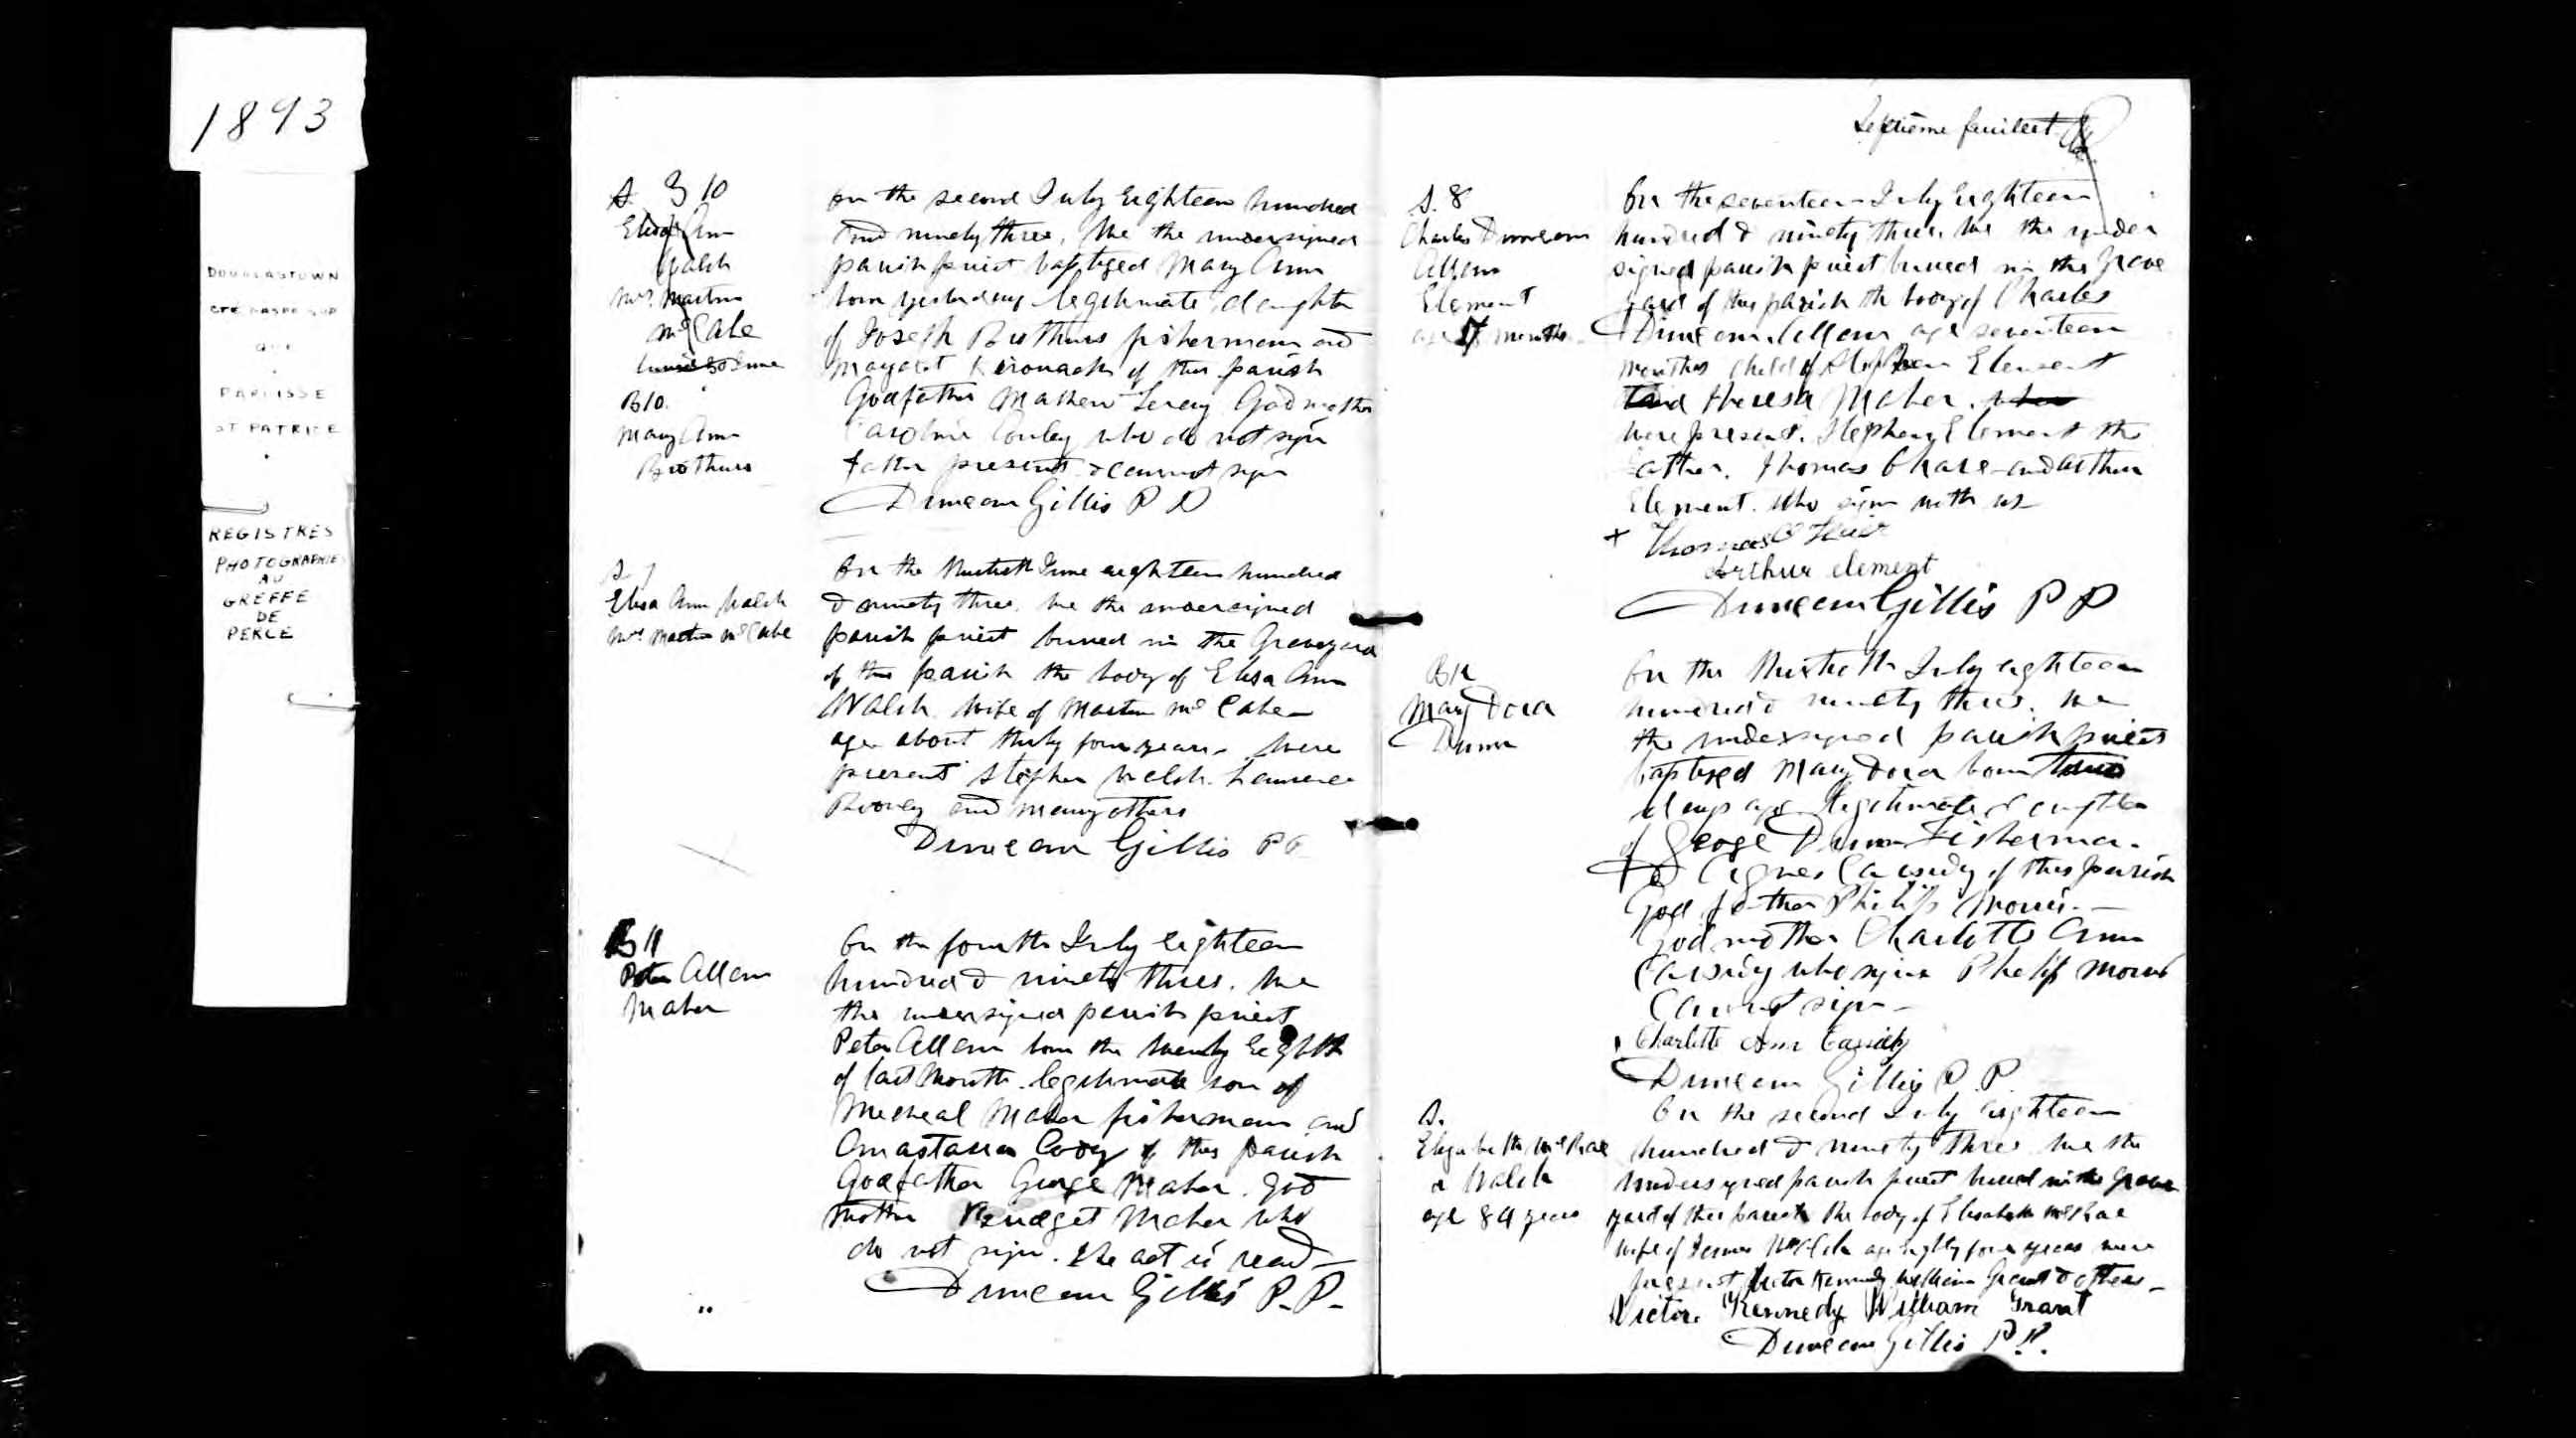 1893
DOUGLASTOWN
CTE GASPE SUD
QUE
PAROISSE
ST PATRICE
REGISTRES
PHOTOGRAPHIES
AU
GREFFE
DE
PERCE
S. 10
Elisa Ann
Walsh
Mrs. Martin
McCabe
B10.
Mary Ann
Brothers
On the second July Eighteen hundred
and ninety three, We the undersigned
parish priest baptized Mary Ann
born yesterday legitimate daughter
of Joseph Brothers fisherman and
Margaret Kirouack of this parish
Godfather Mathew Leray God mother
Caroline Conley who do not sign
father present & cannot sign
Duncan Gillis P P
S. 7
Elisa Ann Walsh
Mrs Martin McCabe
On the thirtieth June eighteen hundred
& ninety three. We the undersigned
parish priest buried in the Graveyard
of this parish the body of Elisa Ann
Walsh wife of Martin McCabe
age about thirty four years. Were
present Stephen Walsh. Lawrence
Rooney and many others
Duncan Gillis PP
B 11
Peter Allan
Maher
On the fourth July eighteen
hundred & ninety three. We
the undersigned parish priest
Peter Allan born the twenty Eighth
of last Month. legitimate son of
Micheal Maher fisherman and
Anastasia Cody of this parish
Godfather George Maher. God
mother Bridget Maher who
do not sign. The act is read
Duncan Gillis P.P.
Septième feuillet
S. 8
Charles Duncan
Allan
Element
age 17 months
On the seventeen July Eighteen
hundred & ninety three. We the under
signed parish priest buried in the Grave
yard of this parish the body of Charles
Duncan Allan age seventeen
months child of Stephen Element
and Theresa Maher.
were present. Stephen Element the
father. Thomas and Arthur
Element. who sign with us
+ Thomas
Arthur element
Duncan Gillis P P
B12
Mary Dora
Dunn
On the thirtieth July eighteen
hundred & ninety three. We
the undersigned parish priest
baptized Mary Dora born two
days ago legitimate daughter
of George Dunn Fisherman
& Agnes Cassidy of this parish
God father Philip Morris.
God mother Charlotte Ann
Cassidy who signs Philip Morris
Cannot sign
Charlotte Ann Cassidy
Duncan Gillis P. P.
S.
Elizabeth McRae
a Walsh
age 84 years
On the second July eighteen
hundred & ninety three we the
undersigned parish priest buried in the Grave
yard of this parish the body of Elizabeth McRae
wife of James Walsh age eighty four years were
present Victor Kennedy William Grant & others
Victor Kennedy William Grant
Duncan Gillis P.P.